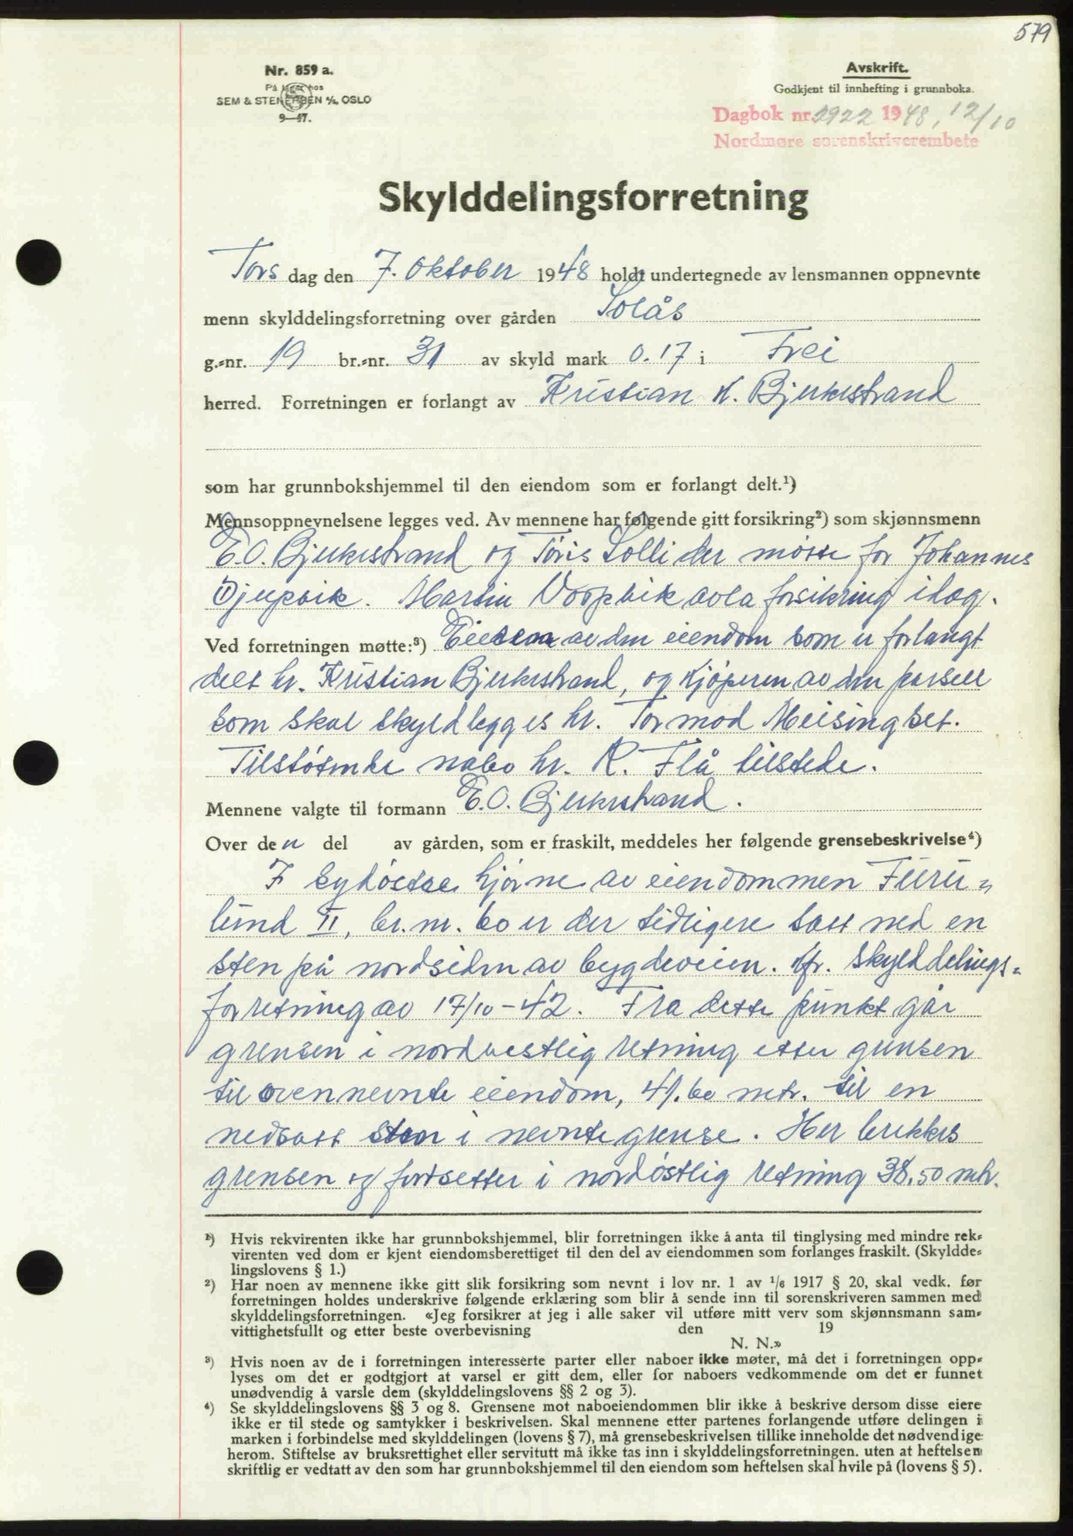 579
Nr. 859 a.
På lager hos
SEM & STENERSEN A/S, OSLO
9—47.
Avskrift.
Godkjent til innhefting i grunnboka.
Dagbok nr. 2922 1948, 12/10
Nordmøre sorenskriverembete
Skylddelingsforretning
Tors dag den 7. Oktober 1948 holdt undertegnede av lensmannen oppnevnte
menn skylddelingsforretning over gården Solås
g.-nr. 19 br.-nr. 31 av skyld mark 0.17 i Frei
herred. Forretningen er forlangt av Kristian K. Bjerkestrand
som har grunnbokshjemmel til den eiendom som er forlangt delt.¹)
Mennsoppnevnelsene legges ved. Av mennene har følgende gitt forsikring²) som skjønnsmenn
E.O. Bjerkestrand og Tøris Solli der møtte for Johannes
Djupvik. Martin Vorpvik avla forsikring idag.
Ved forretningen møtte:³) Eieren av den eiendom som er forlangt
delt hr. Kristian Bjerkestrand, og kjøperen av den parsell
som skal skyldlegges hr. Tormod Meisingset.
Tilstøtende nabo hr. R. Flå tilstede.
Mennene valgte til formann E.O. Bjerkestrand.
Over den del av gården, som er fraskilt, meddeles her følgende grensebeskrivelse⁴)
I sydøstre hjørne av eiendommen Furu-
lund II, br.nr. 60 er der tidligere satt ned en
sten på nordsiden av bygdeveien. kfr. skylddelings-
forretning av 17/10-42. Fra dette punkt går
grensen i nordvestlig retning etter grensen
til ovennevnte eiendom, 41.60 mtr. til en
nedsatt sten i nevnte grense. Her brekkes
grensen og fortsetter i nordøstlig retning 38,50 mtr.
¹) Hvis rekvirenten ikke har grunnbokshjemmel, blir forretningen ikke å anta til tinglysing med mindre rek-
virenten ved dom er kjent eiendomsberettiget til den del av eiendommen som forlanges fraskilt. (Skyldde-
lingslovens § 1.)
²) Har noen av mennene ikke gitt slik forsikring som nevnt i lov nr. 1 av 1/6 1917 § 20, skal vedk. før
forretningen holdes underskrive følgende erklæring som blir å sende inn til sorenskriveren sammen med
skylddelingsforretningen. «Jeg forsikrer at jeg i alle saker vil utføre mitt verv som skjønnsmann sam-
vittighetsfullt og etter beste overbevisning den 19
N. N.»
³) Hvis noen av de i forretningen interesserte parter eller naboer ikke møter, må det i forretningen opp-
lyses om det er godtgjort at varsel er gitt dem, eller for naboers vedkommende om det er funnet
unødvendig å varsle dem (skylddelingslovens §§ 2 og 3).
⁴) Se skylddelingslovens §§ 3 og 8. Grensene mot naboeiendommen blir ikke å beskrive dersom disse eiere
ikke er til stede og samtykker i beskrivelsen. Skal mennene etter partenes forlangende utføre delingen i
marken i forbindelse med skylddelingen (lovens § 7), må grensebeskrivelsen tillike inneholde det nødvendige
herom. Stiftelse av bruksrettighet eller servitutt må ikke tas inn i skylddelingsforretningen. uten at heftelsen
skriftlig er vedtatt av den som har grunnbokshjemmel til den eiendom som heftelsen skal hvile på (lovens § 5).